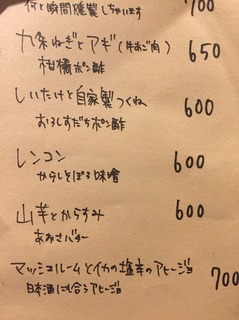 何と瞬間燻製しちゃいます 700
九条ねぎとアギ(牛あご肉) 650
柑橘ポン酢
しいたけと自家製つくね 600
おろしすだちポン酢
レンコン 600
からしそぼろ味噌
山芋とからすみ 600
あおさバター
マッシュルームとイカの塩辛のアヒージョ 700
日本酒にも合うアヒージョ